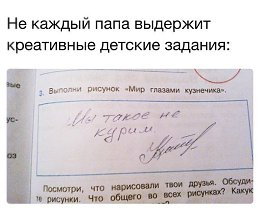 Не каждый папа выдержит
креативные детские задания:
вые
3. Выполни рисунок «Мир глазами кузнечика».
ус-
Мы такое не
курим
оз
Посмотри, что нарисовали твои друзья. Обсуди-
те рисунки. Что общего во всех рисунках? Какук